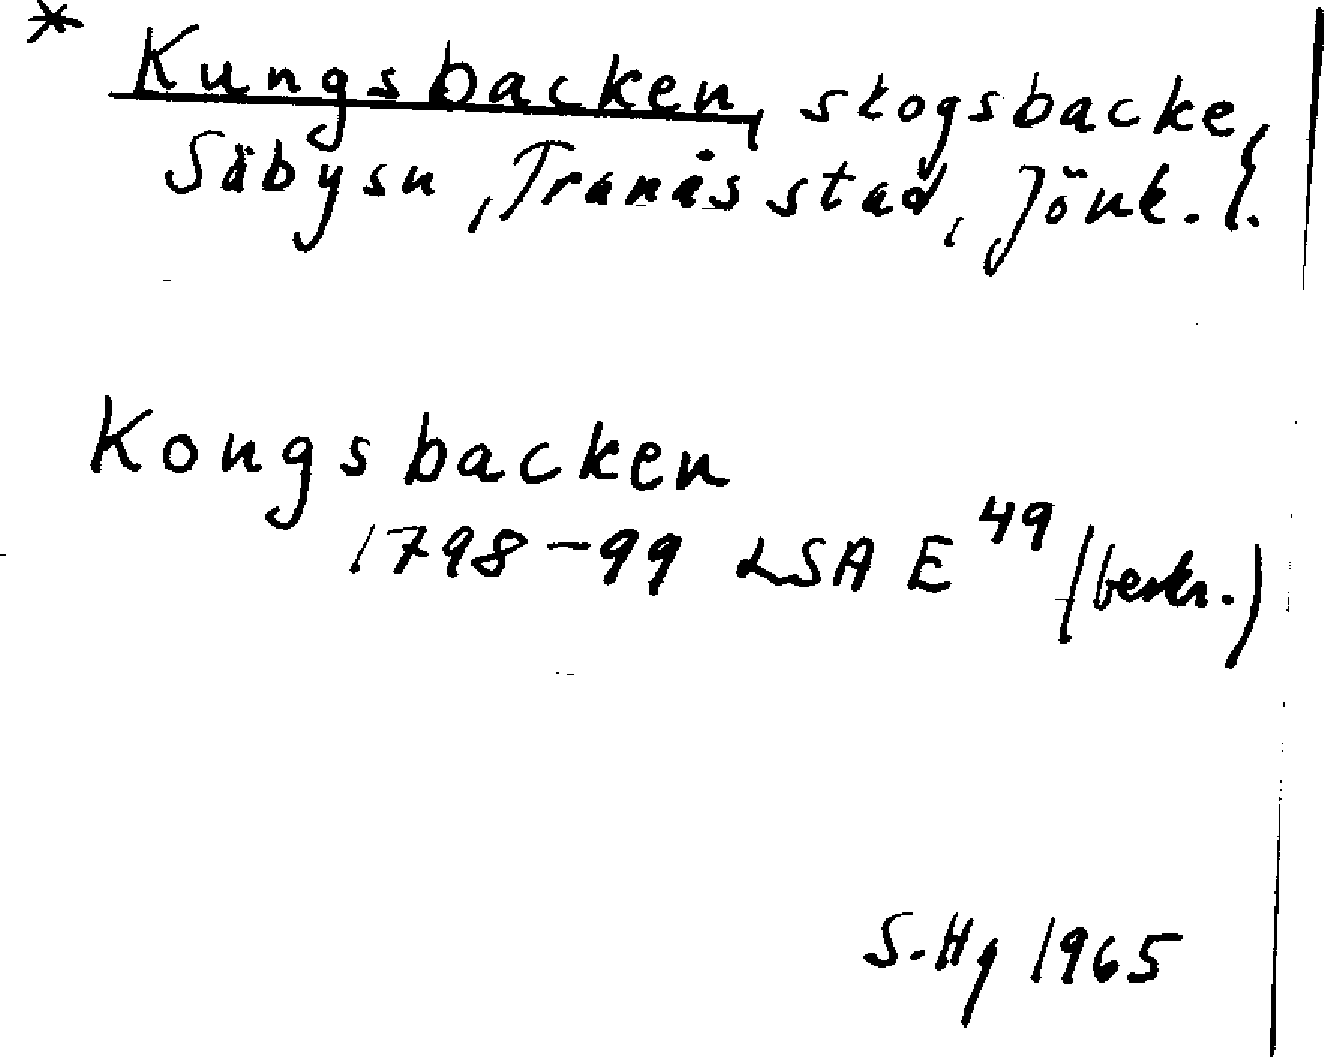 * Kungsbacken, skogsbacke,
Säbysn, Tranås stad, Jönk. l.
Kongsbacken
1798-99 LSA E 49 (beskr.)
S.Hg 1965